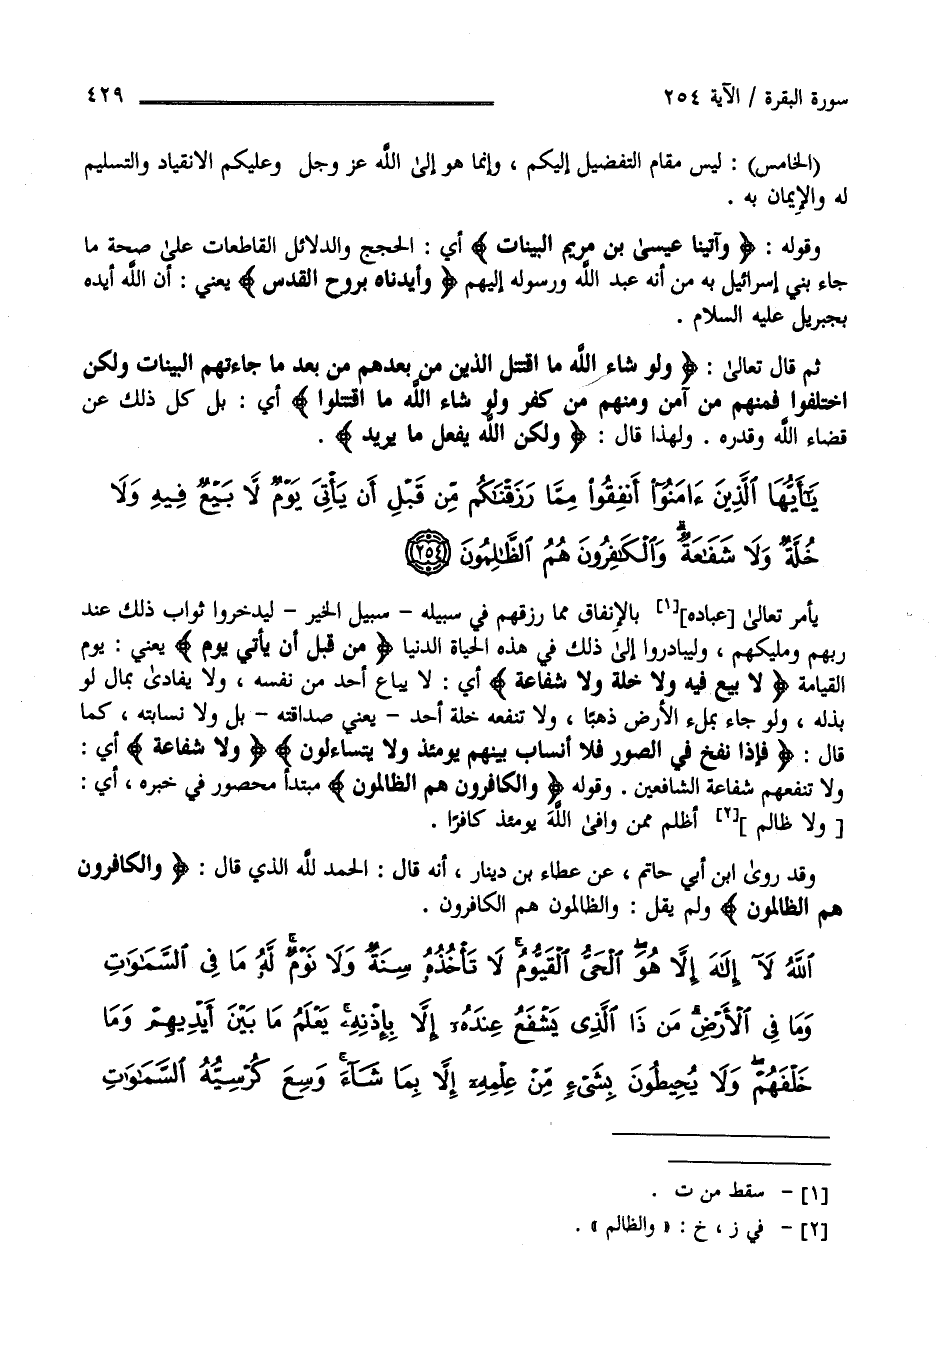 سورة البقرة / الآية ٢٥٤ ٤٢٩
(الخامس) : ليس مقام التفضيل إليكم ، وإنما هو إلىٰ اللَّه عز وجل وعليكم الانقياد والتسليم
له والإِيمان به .
وقوله : ﴿ وآتينا عيسىٰ بن مريم البينات ﴾ أي : الحجج والدلائل القاطعات علىٰ صحة ما
جاء بني إسرائيل به من أنه عبد اللَّه ورسوله إليهم ﴿ وأيدناه بروح القدس ﴾ يعني : أن اللَّه أيده
بجبريل عليه السلام .
ثم قال تعالىٰ : ﴿ ولو شاء اللَّه ما اقتتل الذين من بعدهم من بعد ما جاءتهم البينات ولكن
اختلفوا فمنهم من آمن ومنهم من كفر ولو شاء اللَّه ما اقتتلوا ﴾ أي : بل كل ذلك عن
قضاء اللَّه وقدره . ولهذا قال : ﴿ ولكن اللَّه يفعل ما يريد ﴾ .
يَٰٓأَيُّهَا ٱلَّذِينَ ءَامَنُوٓا۟ أَنفِقُوا۟ مِمَّا رَزَقْنَٰكُم مِّن قَبْلِ أَن يَأْتِىَ يَوْمٌ لَّا بَيْعٌ فِيهِ وَلَا
خُلَّةٌ وَلَا شَفَٰعَةٌ ۗ وَٱلْكَٰفِرُونَ هُمُ ٱلظَّٰلِمُونَ ٢٥٤
يأمر تعالىٰ [عباده][١] بالإِنفاق مما رزقهم في سبيله - سبيل الخير - ليدخروا ثواب ذلك عند
ربهم ومليكهم ، وليبادروا إلىٰ ذلك في هذه الحياة الدنيا ﴿ من قبل أن يأتي يوم ﴾ يعني : يوم
القيامة ﴿ لا بيع فيه ولا خلة ولا شفاعة ﴾ أي : لا يباع أحد من نفسه ، ولا يفادىٰ بمال لو
بذله ، ولو جاء بملء الأرض ذهبًا ، ولا تنفعه خلة أحد - يعني صداقته - بل ولا نسابته ، كما
قال : ﴿ فإذا نفخ في الصور فلا أنساب بينهم يومئذ ولا يتساءلون ﴾ ﴿ ولا شفاعة ﴾ أي :
ولا تنفعهم شفاعة الشافعين . وقوله ﴿ والكافرون هم الظالمون ﴾ مبتدأ محصور في خبره ، أي :
[ ولا ظالم ][٢] أظلم ممن وافىٰ اللَّهَ يومئذ كافرًا .
وقد روىٰ ابن أبي حاتم ، عن عطاء بن دينار ، أنه قال : الحمد للَّه الذي قال : ﴿ والكافرون
هم الظالمون ﴾ ولم يقل : والظالمون هم الكافرون .
ٱللَّهُ لَآ إِلَٰهَ إِلَّا هُوَ ٱلْحَىُّ ٱلْقَيُّومُ ۚ لَا تَأْخُذُهُۥ سِنَةٌ وَلَا نَوْمٌ ۚ لَّهُۥ مَا فِى ٱلسَّمَٰوَٰتِ
وَمَا فِى ٱلْأَرْضِ ۗ مَن ذَا ٱلَّذِى يَشْفَعُ عِندَهُۥٓ إِلَّا بِإِذْنِهِۦ ۚ يَعْلَمُ مَا بَيْنَ أَيْدِيهِمْ وَمَا
خَلْفَهُمْ ۖ وَلَا يُحِيطُونَ بِشَىْءٍ مِّنْ عِلْمِهِۦٓ إِلَّا بِمَا شَآءَ ۚ وَسِعَ كُرْسِيُّهُ ٱلسَّمَٰوَٰتِ
[١] - سقط من ت .
[٢] - في ز ، خ : « والظالم » .